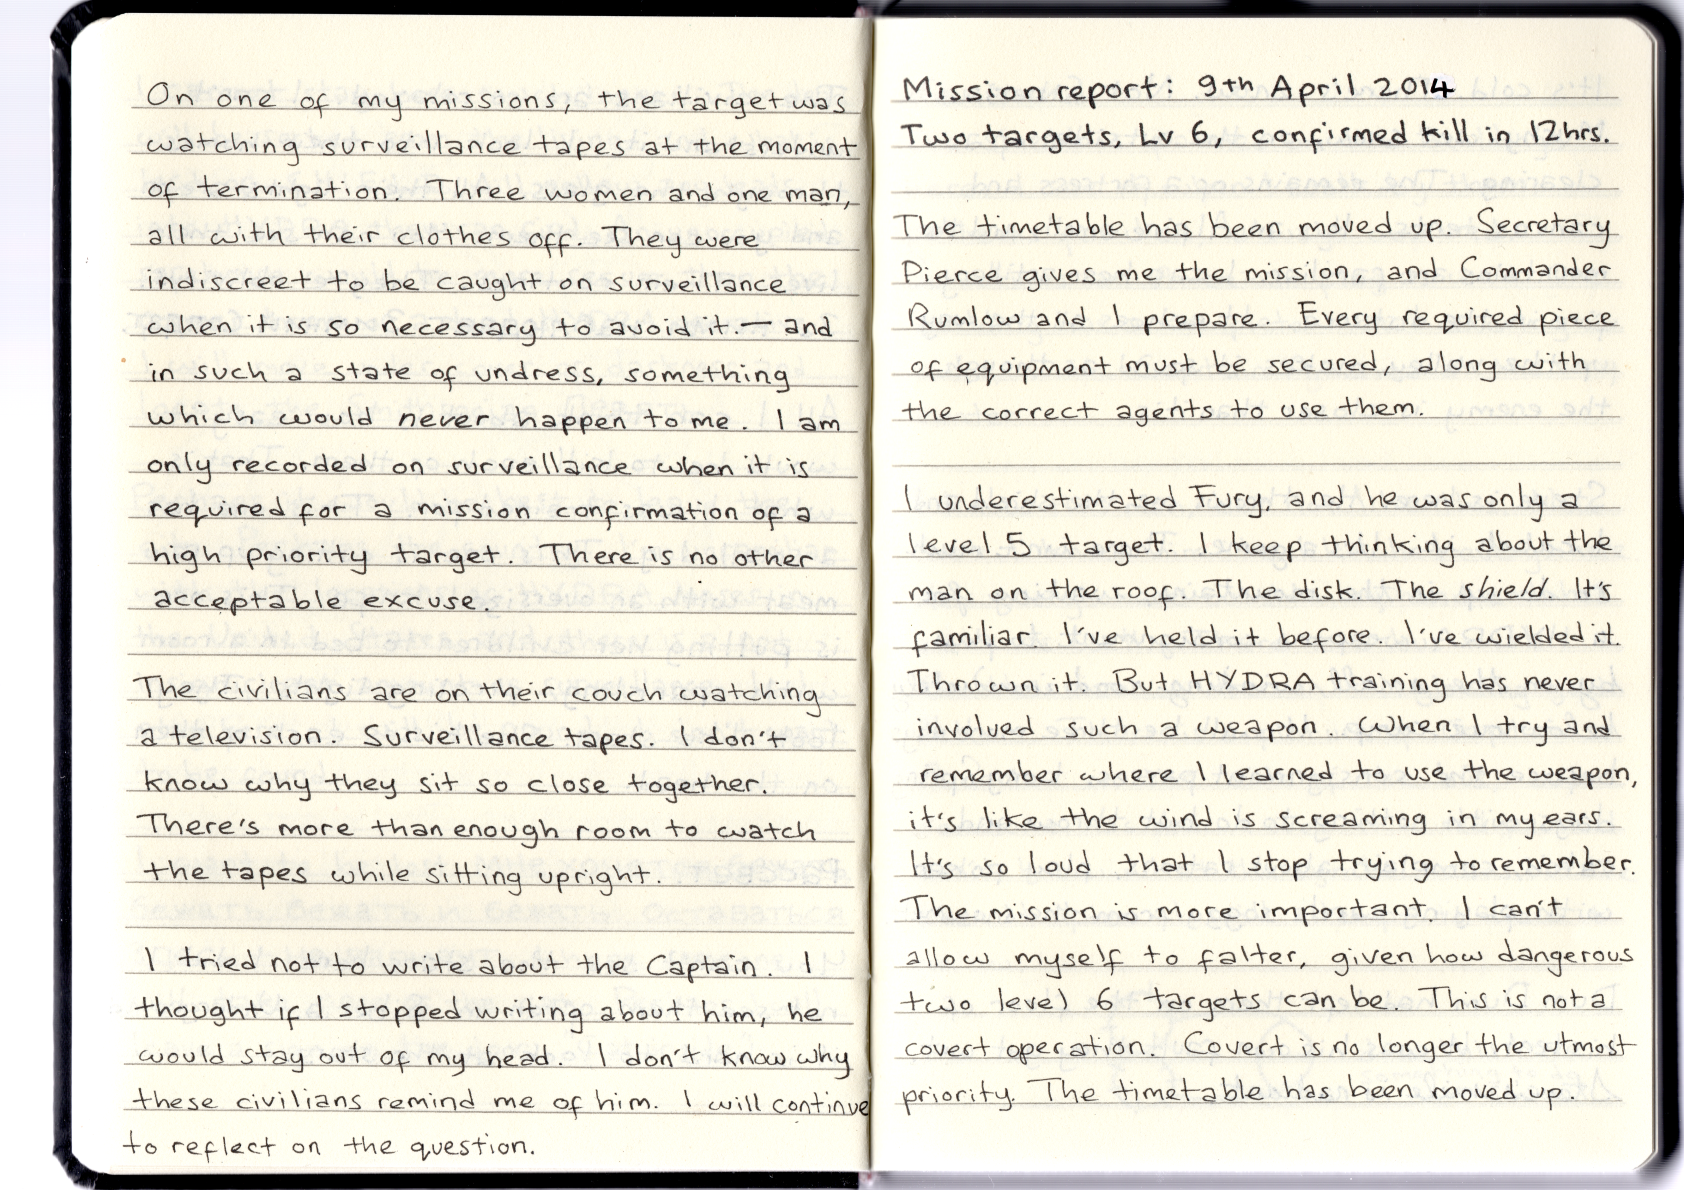 On one of my missions, the target was
watching surveillance tapes at the moment
of termination. Three women and one man,
all with their clothes off. They were
indiscreet to be caught on surveillance
when it is so necessary to avoid it. — and
in such a state of undress, something
which would never happen to me. I am
only recorded on surveillance when it is
required for a mission confirmation of a
high priority target. There is no other
acceptable excuse.
The civilians are on their couch watching
a television. Surveillance tapes. I don't
know why they sit so close together.
There's more than enough room to watch
the tapes while sitting upright.
I tried not to write about the Captain. I
thought if I stopped writing about him, he
would stay out of my head. I don't know why
these civilians remind me of him. I will continue
to reflect on the question.
Mission report: 9th April 2014
Two targets, Lv 6, confirmed kill in 12hrs.
The timetable has been moved up. Secretary
Pierce gives me the mission, and Commander
Rumlow and I prepare. Every required piece
of equipment must be secured, along with
the correct agents to use them.
I underestimated Fury, and he was only a
level 5 target. I keep thinking about the
man on the roof. The disk. The shield. It's
familiar. I've held it before. I've wielded it.
Thrown it. But HYDRA training has never
involved such a weapon. When I try and
remember where I learned to use the weapon,
it's like the wind is screaming in my ears.
It's so loud that I stop trying to remember.
The mission is more important. I can't
allow myself to falter, given how dangerous
two level 6 targets can be. This is not a
covert operation. Covert is no longer the utmost
priority. The timetable has been moved up.